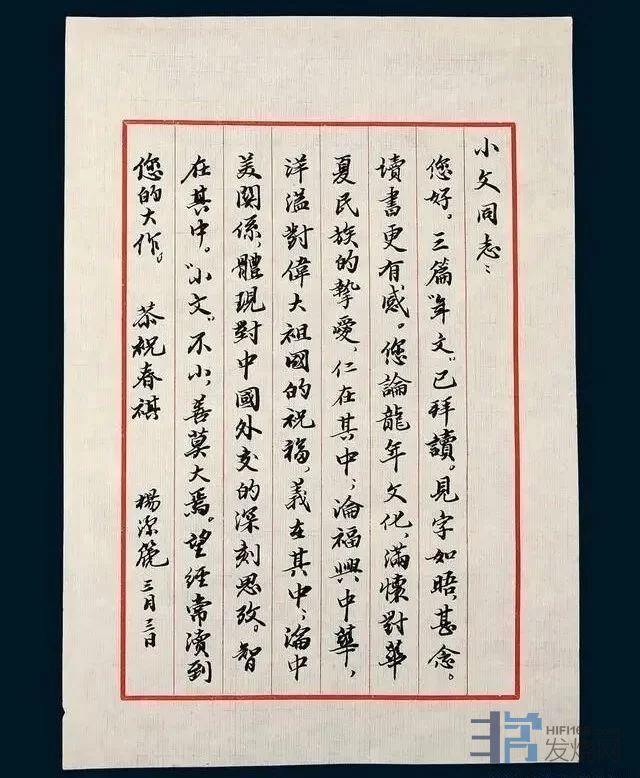 小文同志：
您好。三篇“年文”已拜讀。見字如晤，甚念。
讀書更有感。您論龍年文化，滿懷對華
夏民族的摯愛，仁在其中；論福興中華，
洋溢對偉大祖國的祝福，義在其中；論中
美關係，體現對中國外交的深刻思考。智
在其中。“小文”不小，善莫大焉。望經常讀到
您的大作。 恭祝春祺
楊潔篪 三月三日
HIFI168
发烧网